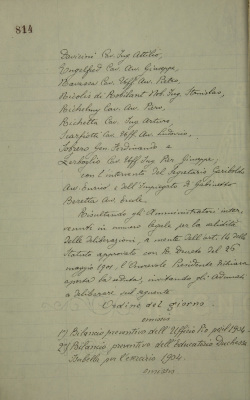 814
Davicini Cav. Ing. Attilio,
Engelfred Cav. Avv. Giuseppe,
Cav. Uff. Avv. Pietro,
Nicolis di Robilant Nob. Ing. Stanislao,
Cav. Avv. Piero,
Richetta Cav. Ing. Arturo,
Scarfiotti Cav. Uff. Avv. Lodovico,
Ferdinando e
Zerboglio Cav. Uff. Ing. Pier Giuseppe;
con l'intervento del Segretario Garibaldi
Avv. Enrico e dell'Impiegato di Gabinetto
Beretta Avv. Ercole.
Risultando gli Amministratori inter-
venuti in numero legale per la validità
delle deliberazioni, a mente dell'art. 16 dello
Statuto approvato con R. Decreto del 26
maggio 1901, l'Onorevole Presidente dichiara
aperta la seduta, invitando gli Adunati
a deliberare sul seguente
Ordine del giorno
1°) Bilancio preventivo dell'Ufficio Pio pel 1934.
2°) Bilancio preventivo dell'Educatorio Duchessa
Isabella per l'esercizio 1934.